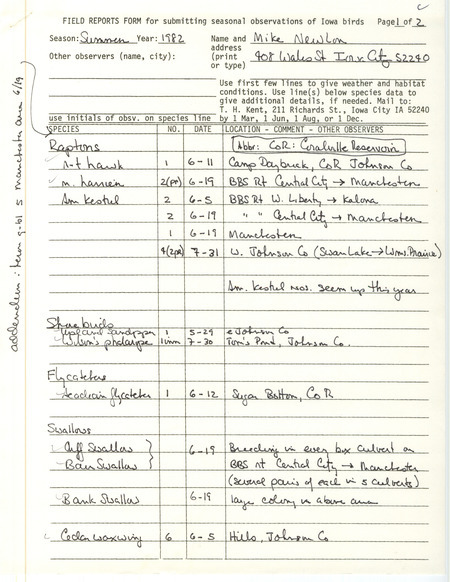 FIELD REPORTS FORM for submitting seasonal observations of Iowa birds Page 1 of 2
Season: Summer Year: 1982 Name and Mike Newlon
address
Other observers (name, city): (print 908 Wales St Iowa City 52240
or type)
Use first few lines to give weather and habitat
conditions. Use line(s) below species data to
give additional details, if needed. Mail to:
T. H. Kent, 211 Richards St., Iowa City IA 52240
use initials of obsv. on species line by 1 Mar, 1 Jun, 1 Aug, or 1 Dec.
SPECIES NO. DATE LOCATION - COMMENT - OTHER OBSERVERS
Raptors Abbr: CoR: Coralville Reservoir
r-t hawk 1 6-11 Camp Daybreak, CoR Johnson Co
m. harrier 2(pr) 6-19 BBS Rt Central City → Manchester
Am Kestrel 2 6-5 BBS Rt W. Liberty → Kalona
2 6-19 " " Central City → Manchester
1 6-19 Manchester
4(2pr) 7-31 W. Johnson Co (Swan Lake → Wms. Prairie)
Am. Kestrel nos. seem up this year
Shorebirds
Upland Sandpiper 1 5-29 e Johnson Co
Wilson's phalarope 1 imm 7-30 Tom's Pond, Johnson Co.
Flycatchers
Acadian flycatcher 1 6-12 Sugar Bottom, CoR
Swallows
Cliff Swallow 6-19 Breeding in every box culvert on
Barn Swallow BBS rt Central City → Manchester
(several pairs of each in 5 culverts)
Bank Swallow 6-19 large colony in above area
Cedar waxwing 6 6-5 Hills, Johnson Co
addendum: heron g-bl 5 Manchester area 6/19